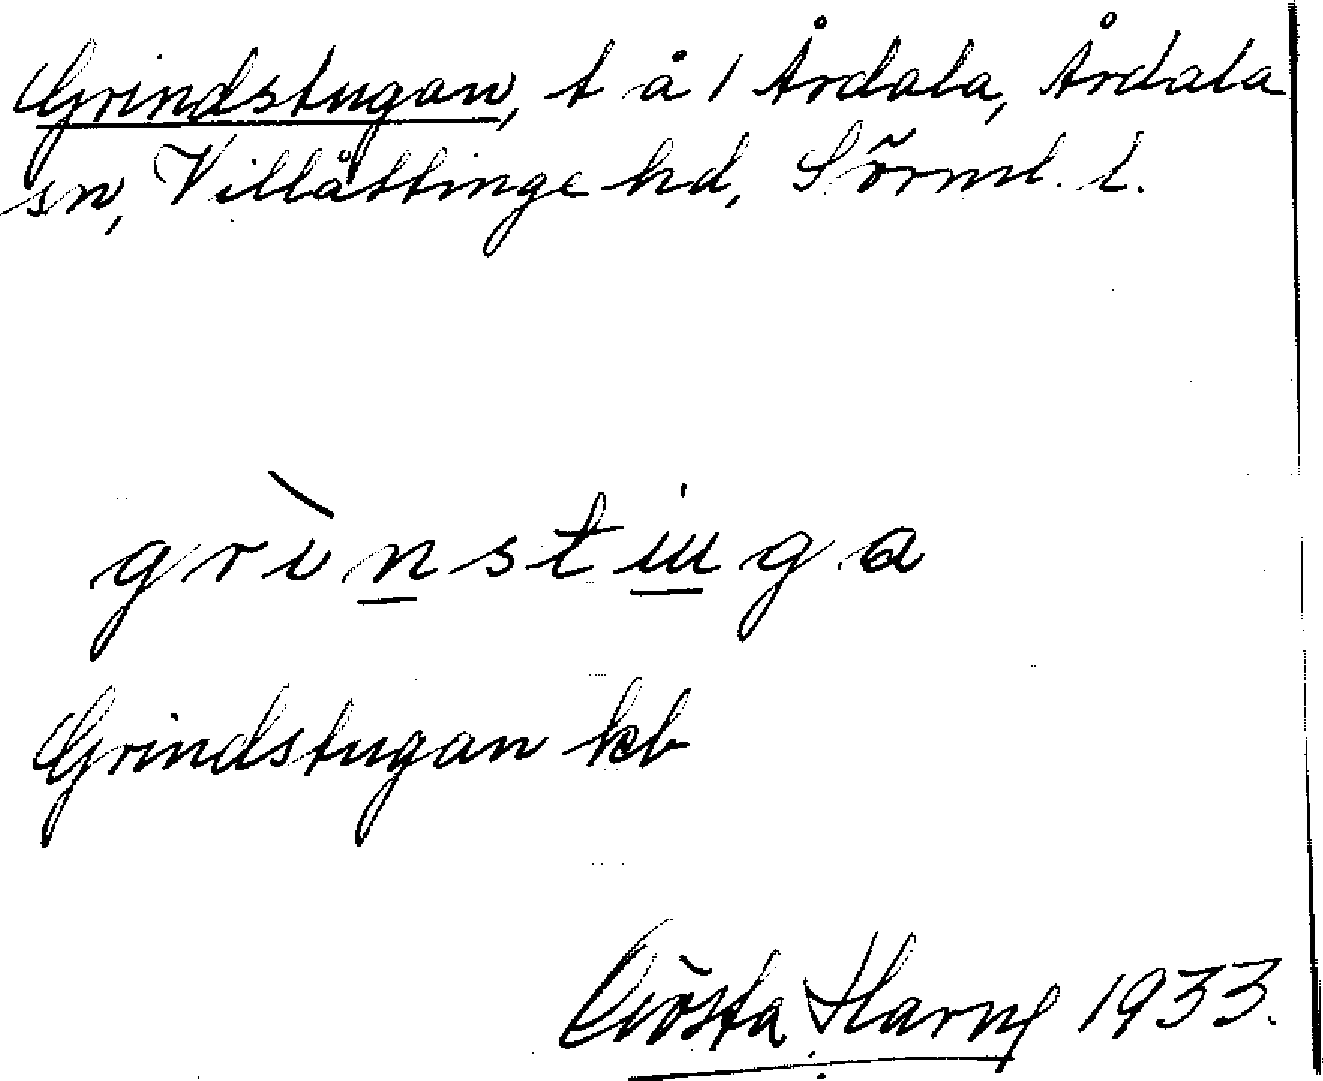 Grindstugan, t å 1 Årdala, Årdala
sn, Villåttinge hd, Sörml. l.
grìnstuga
Grindstugan kb
Gösta Harng 1933.